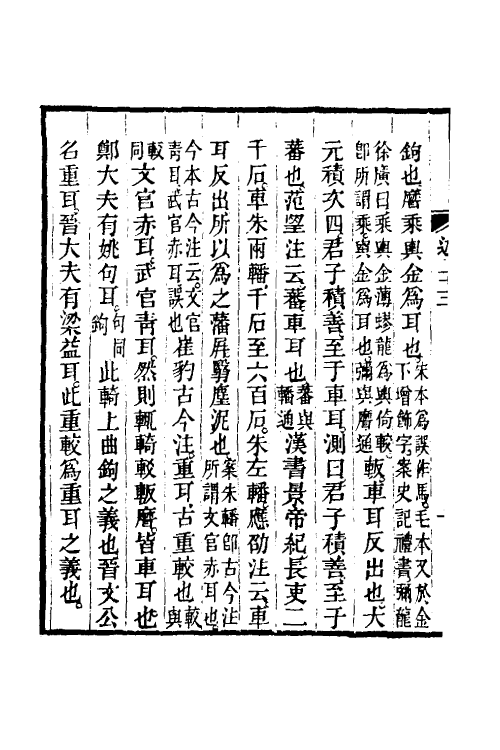 鉤也䃺乘輿金爲耳也宋本爲誤作馬毛本又於金下增飾字案史記禮書彌龍
徐廣曰乘輿金薄蟉龍爲輿倚較卽所謂乘輿金爲耳也彌與䃺通䡊車耳反出也大
元積次四君子積善至于車耳測曰君子積善至于
蕃也范望注云蕃車耳也蕃與轓通漢書景帝紀長吏二
千石車朱兩轓千石至六百石朱左轓應劭注云車
耳反出所以爲之藩屏翳塵泥也案朱轓卽古今注所謂文官赤耳也
今本古今注云文官青耳武官赤耳誤也崔豹古今注重耳古重較也較與
較同文官赤耳武官青耳然則輒輢䡊䃺皆車耳也
鄭大夫有姚句耳句同鉤此輢上曲鉤之義也晉文公
名重耳晉大夫有梁益耳此重較爲重耳之義也